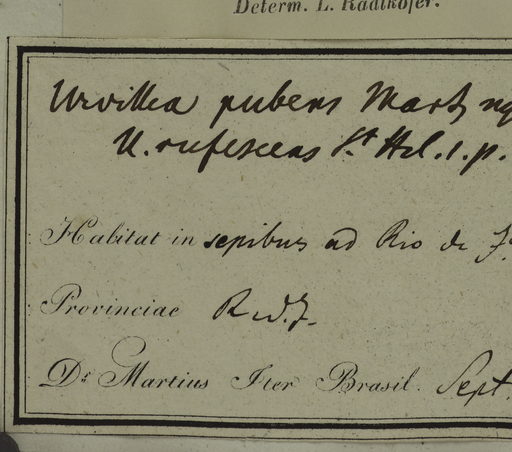 Determ. L. Radlkofer.
Urvillea pubens Mart.
U. rufescens St Hil. 1. p.
Habitat in sepibus ad Rio de J
Provinciae R. d. J.
Dr. Martius Iter Brasil. Sept.